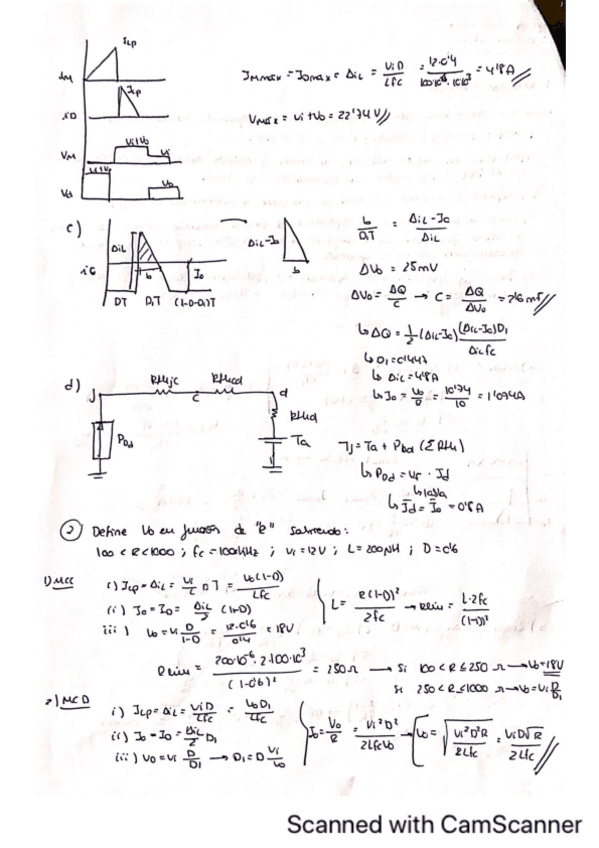 iM
iLp
iD
iLp
VM
Vi+Vo
Vi
Vo
IMmax = IDmax = ΔiL = ViD/Lfc = 12·0'4/100·10⁻⁶·10·10³ = 4'8A
Vmax = Vi+Vo = 22'74V
c)
iC
ΔiL
b
Io
DT D₁T (1-D-D₁)T
ΔiL-Io
b
b/D₁T = ΔiL-Io/ΔiL
ΔVo = 25mV
ΔVo = ΔQ/C → C = ΔQ/ΔVo = 7'6 mF
↳ ΔQ = 1/2 (ΔiL-Io) (ΔiL-Io)D₁/ΔiL fc
↳ D₁ = 0'447
↳ ΔiL = 4'8A
↳ Io = Vo/R = 10'74/10 = 1'074A
d)
j RthJc c Rthcd d
Rthd
PDd
Ta
Tj = Ta + PDd (ΣRth)
↳ PDd = Vf · Id
↳ tabla
↳ Id = Io = 0'8A
② Define Vo en función de "R" sabiendo:
100 < R < 1000 ; fc = 100kHz ; Vi = 12V ; L = 200μH ; D = 0'6
1) MCC
i) ILp = ΔiL = Vi/L DT = Vo(1-D)/Lfc
ii) Io = Io = ΔiL/2 (1-D)
iii) Vo = Vi D/1-D = 12·0'6/0'4 = 18V
L = R(1-D)²/2fc → Rlim = L·2fc/(1-D)²
Rlim = 200·10⁻⁶·2·100·10³/(1-0'6)² = 250Ω → Si 100 < R ≤ 250 Ω → Vo = 18V
Si 250 < R ≤ 1000 Ω → Vo = Vi D/D₁
2) MCD
i) ILp = ΔiL = ViD/Lfc = VoD₁/Lfc
ii) Io = Io = ΔiL/2 D₁
iii) Vo = Vi D/D₁ → D₁ = D Vi/Vo
Io = Vo/R = Vi²D²/2LfcVo → Vo = √Vi²D²R/2Lfc = ViD√R/2Lfc
Scanned with CamScanner